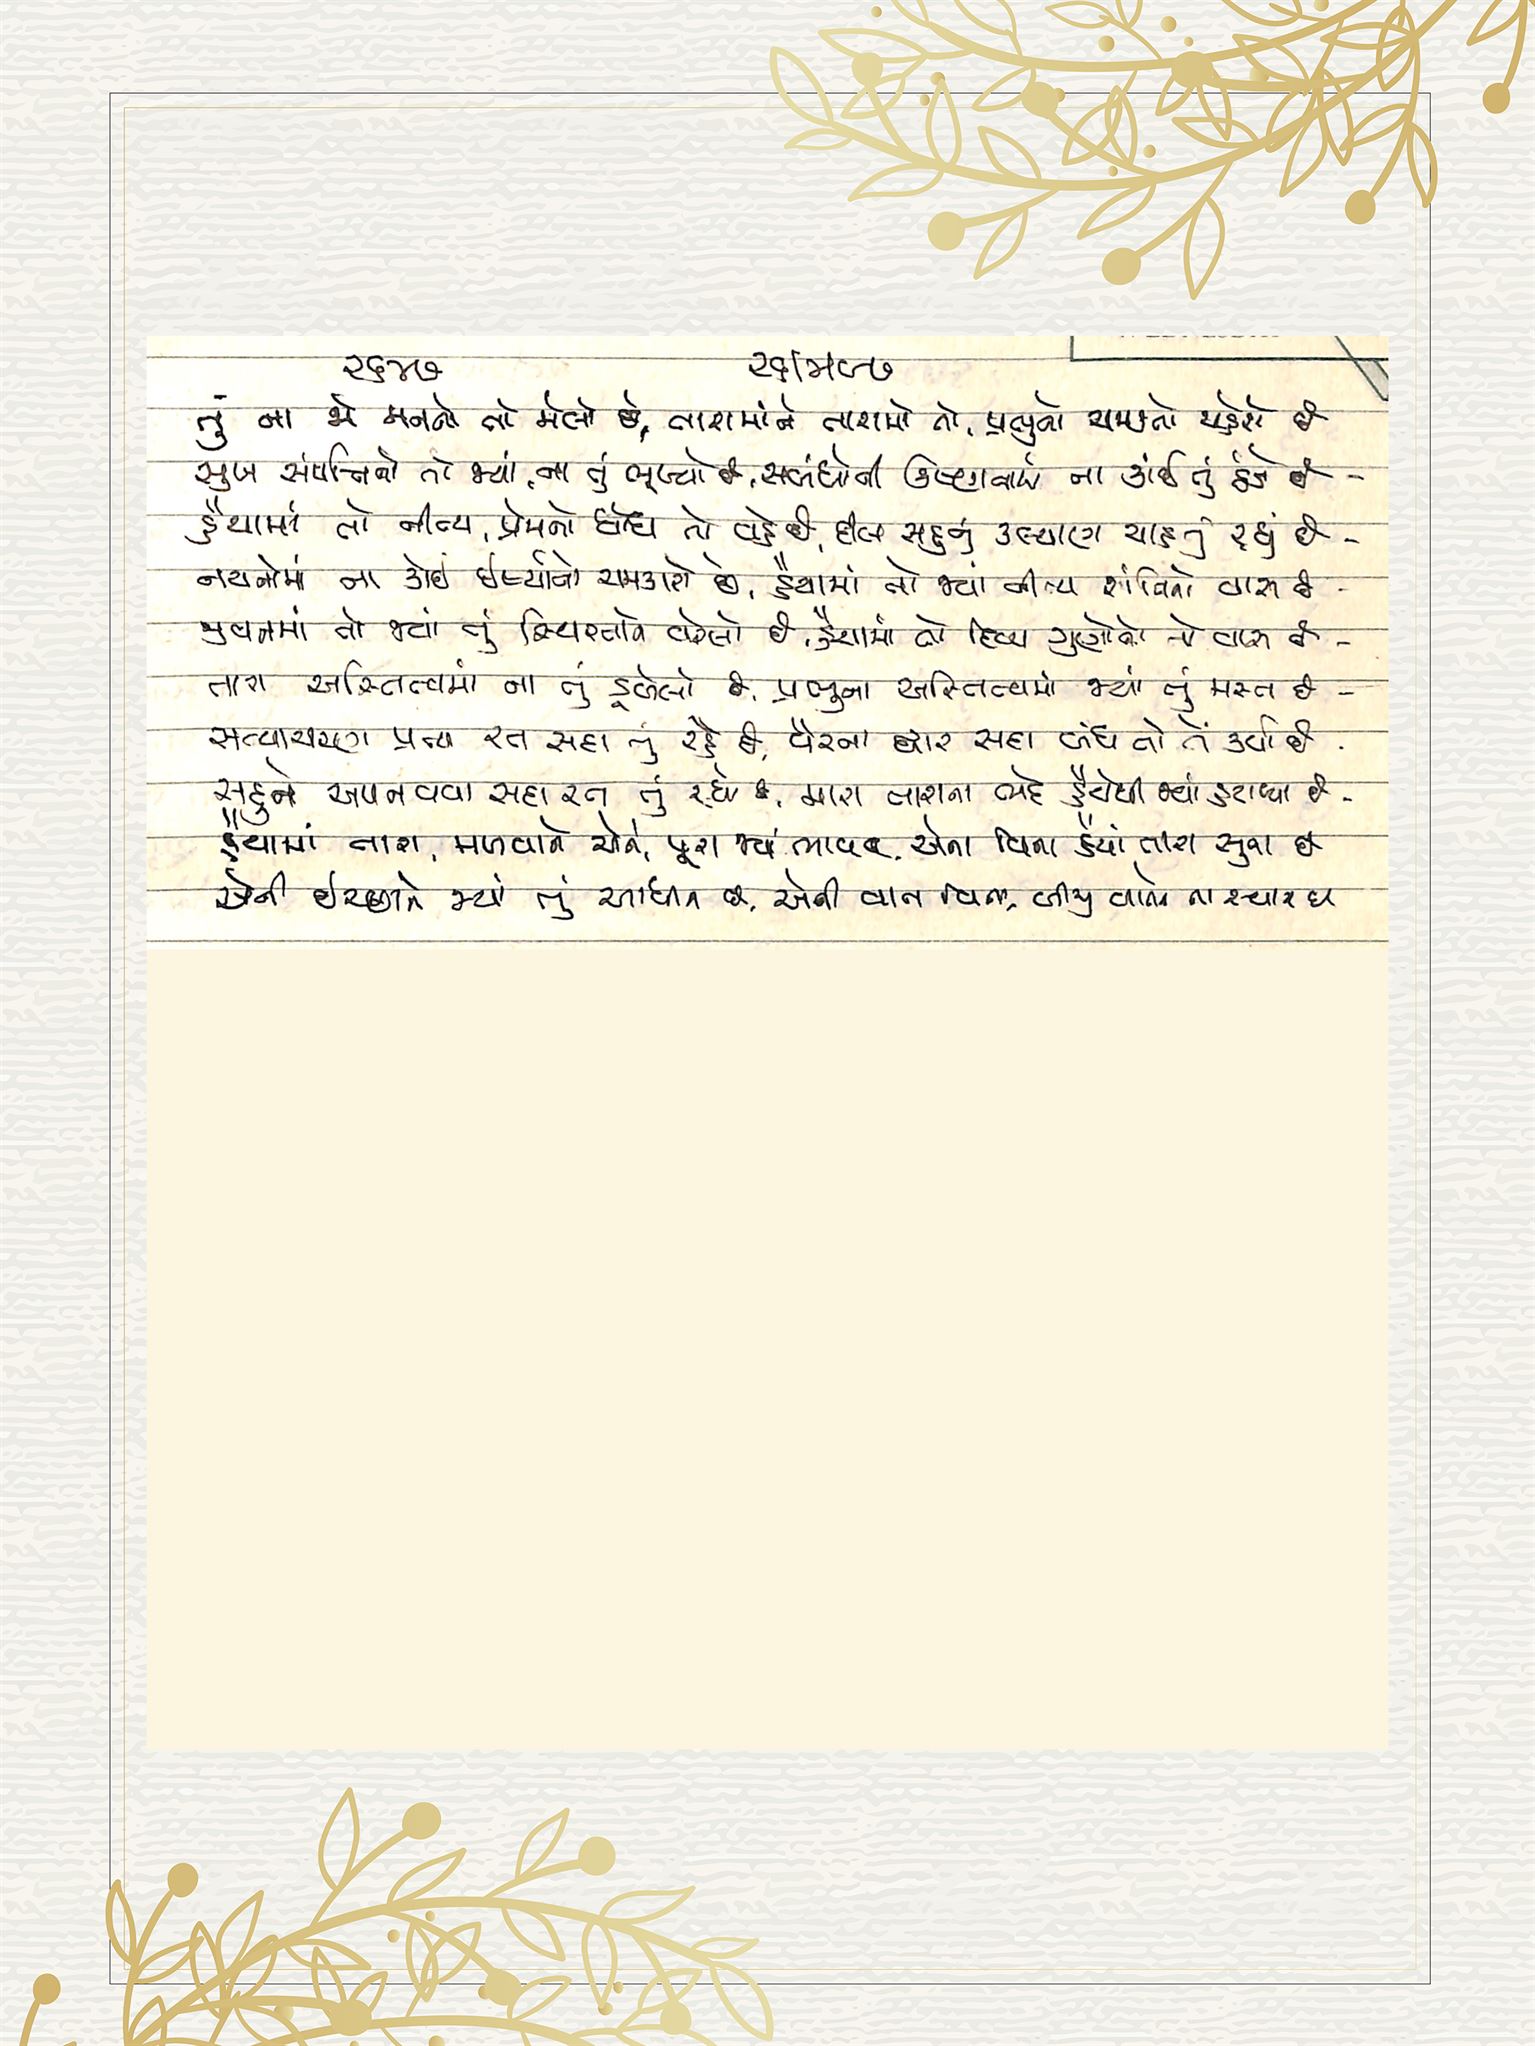 ૨૬૪૭ ૨૬/૫/૮૭
તું ના જો મનનો તો મેલો છે, તારામાંને તારામાં તો, પ્રભુનો ચમકતો ચહેરો છે
સુખ સંપત્તિનો તો જ્યાં, ના તું ભૂખ્યો છે, સબંધોની ના કાંઈ તું છે -
હૈયામાં તો નીત્ય, પ્રેમનો ધોધ તો વહે છે, દીલ સહુનું કલ્યાણ ચાહતું રહ્યું છે -
નયનોમાં ના કોઈ ઈર્ષ્યાનો ચમકારો છે, હૈયામાં તો જ્યાં નીત્ય શાંતિનો વાસ છે -
જીવનમાં તો જ્યાં તું સ્થિરતાને વરેલો છે, હૈયામાં તો દિવ્ય ગુણોનો તો વાસ છે -
તારા અસ્તિત્વમાં ના તું ડૂબેલો છે, પ્રભુના અસ્તિત્વમાં જ્યાં તું મસ્ત છે -
સત્યાચરણ રત સદા તું રહે છે, વૈરના દ્વાર સદા બંધ તો તેં કર્યા છે -
સહુને અપનાવવા સદા રત તું રહ્યો છે, મારા તારાના ભેદ હૈયેથી જ્યાં હટાવ્યા છે -
હૈયામાં તારા, મળવાને એને, પૂરા જ્યાં ભાવ છે, એના વિના હૈયાં તારા સુના છે
એની ઈચ્છાને જ્યાં તું આધીન છે, એની વાત વિના, બીજી વાતો ના